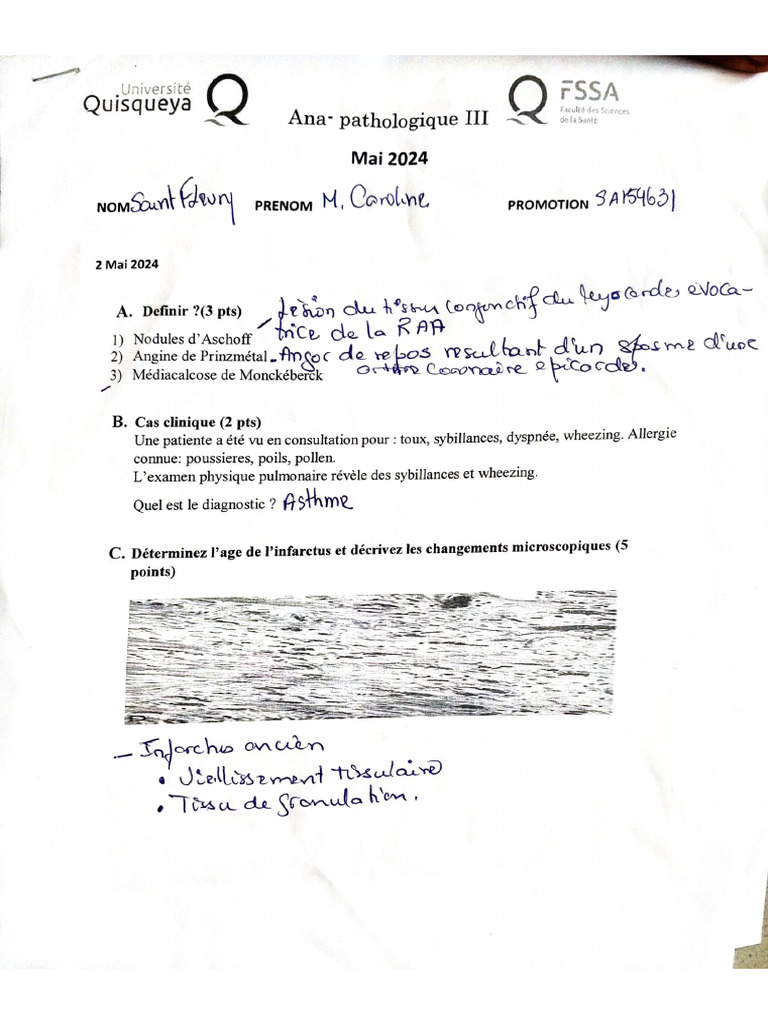 Université
Quisqueya
FSSA
Faculté des Sciences
de la Santé
Ana- pathologique III
Mai 2024
NOM Saint Fleury PRENOM M. Caroline PROMOTION SA154631
2 Mai 2024
A. Definir ?(3 pts) Lésion du tissu conjonctif du myocarde, évoca-
1) Nodules d'Aschoff trice de la RAA
2) Angine de Prinzmétal - Angor de repos resultant d'un spasme d'une
3) Médiacalcose de Monckéberck artère coronaire epicardes.
B. Cas clinique (2 pts)
Une patiente a été vu en consultation pour : toux, sybillances, dyspnée, wheezing. Allergie
connue: poussieres, poils, pollen.
L'examen physique pulmonaire révèle des sybillances et wheezing.
Quel est le diagnostic ? Asthme
C. Déterminez l'age de l'infarctus et décrivez les changements microscopiques (5
points)
- Infarctus ancien
• Vieillissement tissulaire
• Tissu de granulation.